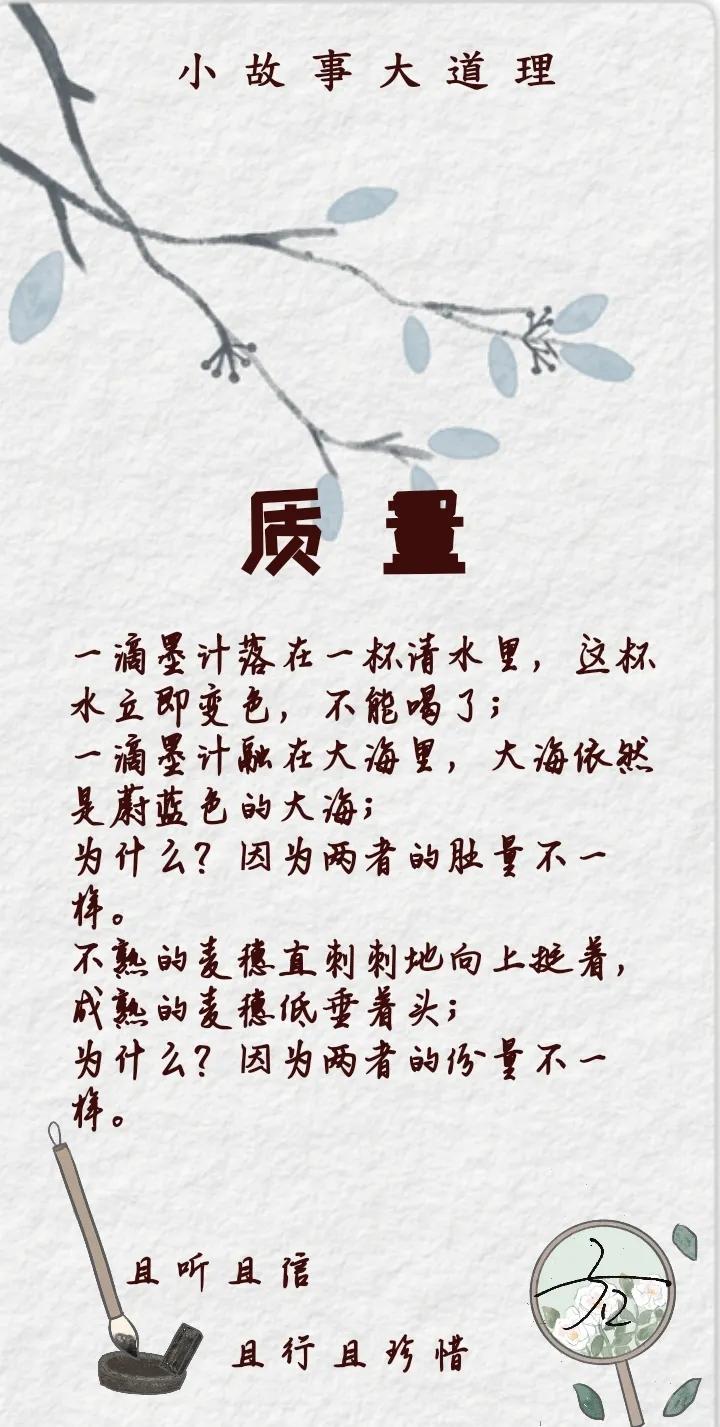 小故事大道理
质量
一滴墨计落在一杯清水里，这杯
水立即变色，不能喝了；
一滴墨计融在大海里，大海依然
是蔚蓝色的大海；
为什么？因为两者的肚量不一
样。
不熟的麦穗直刺刺地向上挺着，
成熟的麦穗低垂着头；
为什么？因为两者的份量不一
样。
且听且信
且行且珍惜